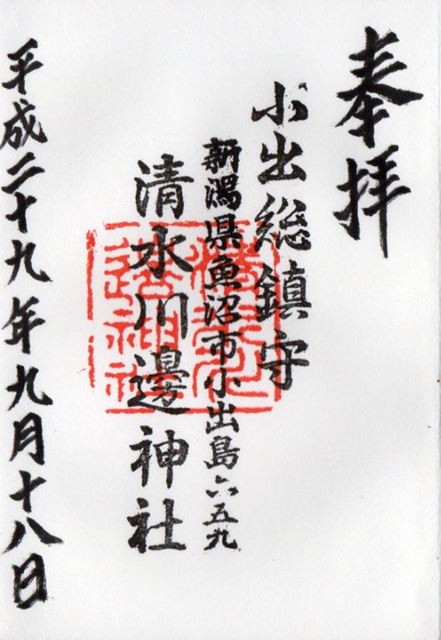 奉拝
小出総鎮守
新潟県魚沼市小出島六五九
清水川邊神社
平成二十九年九月十八日